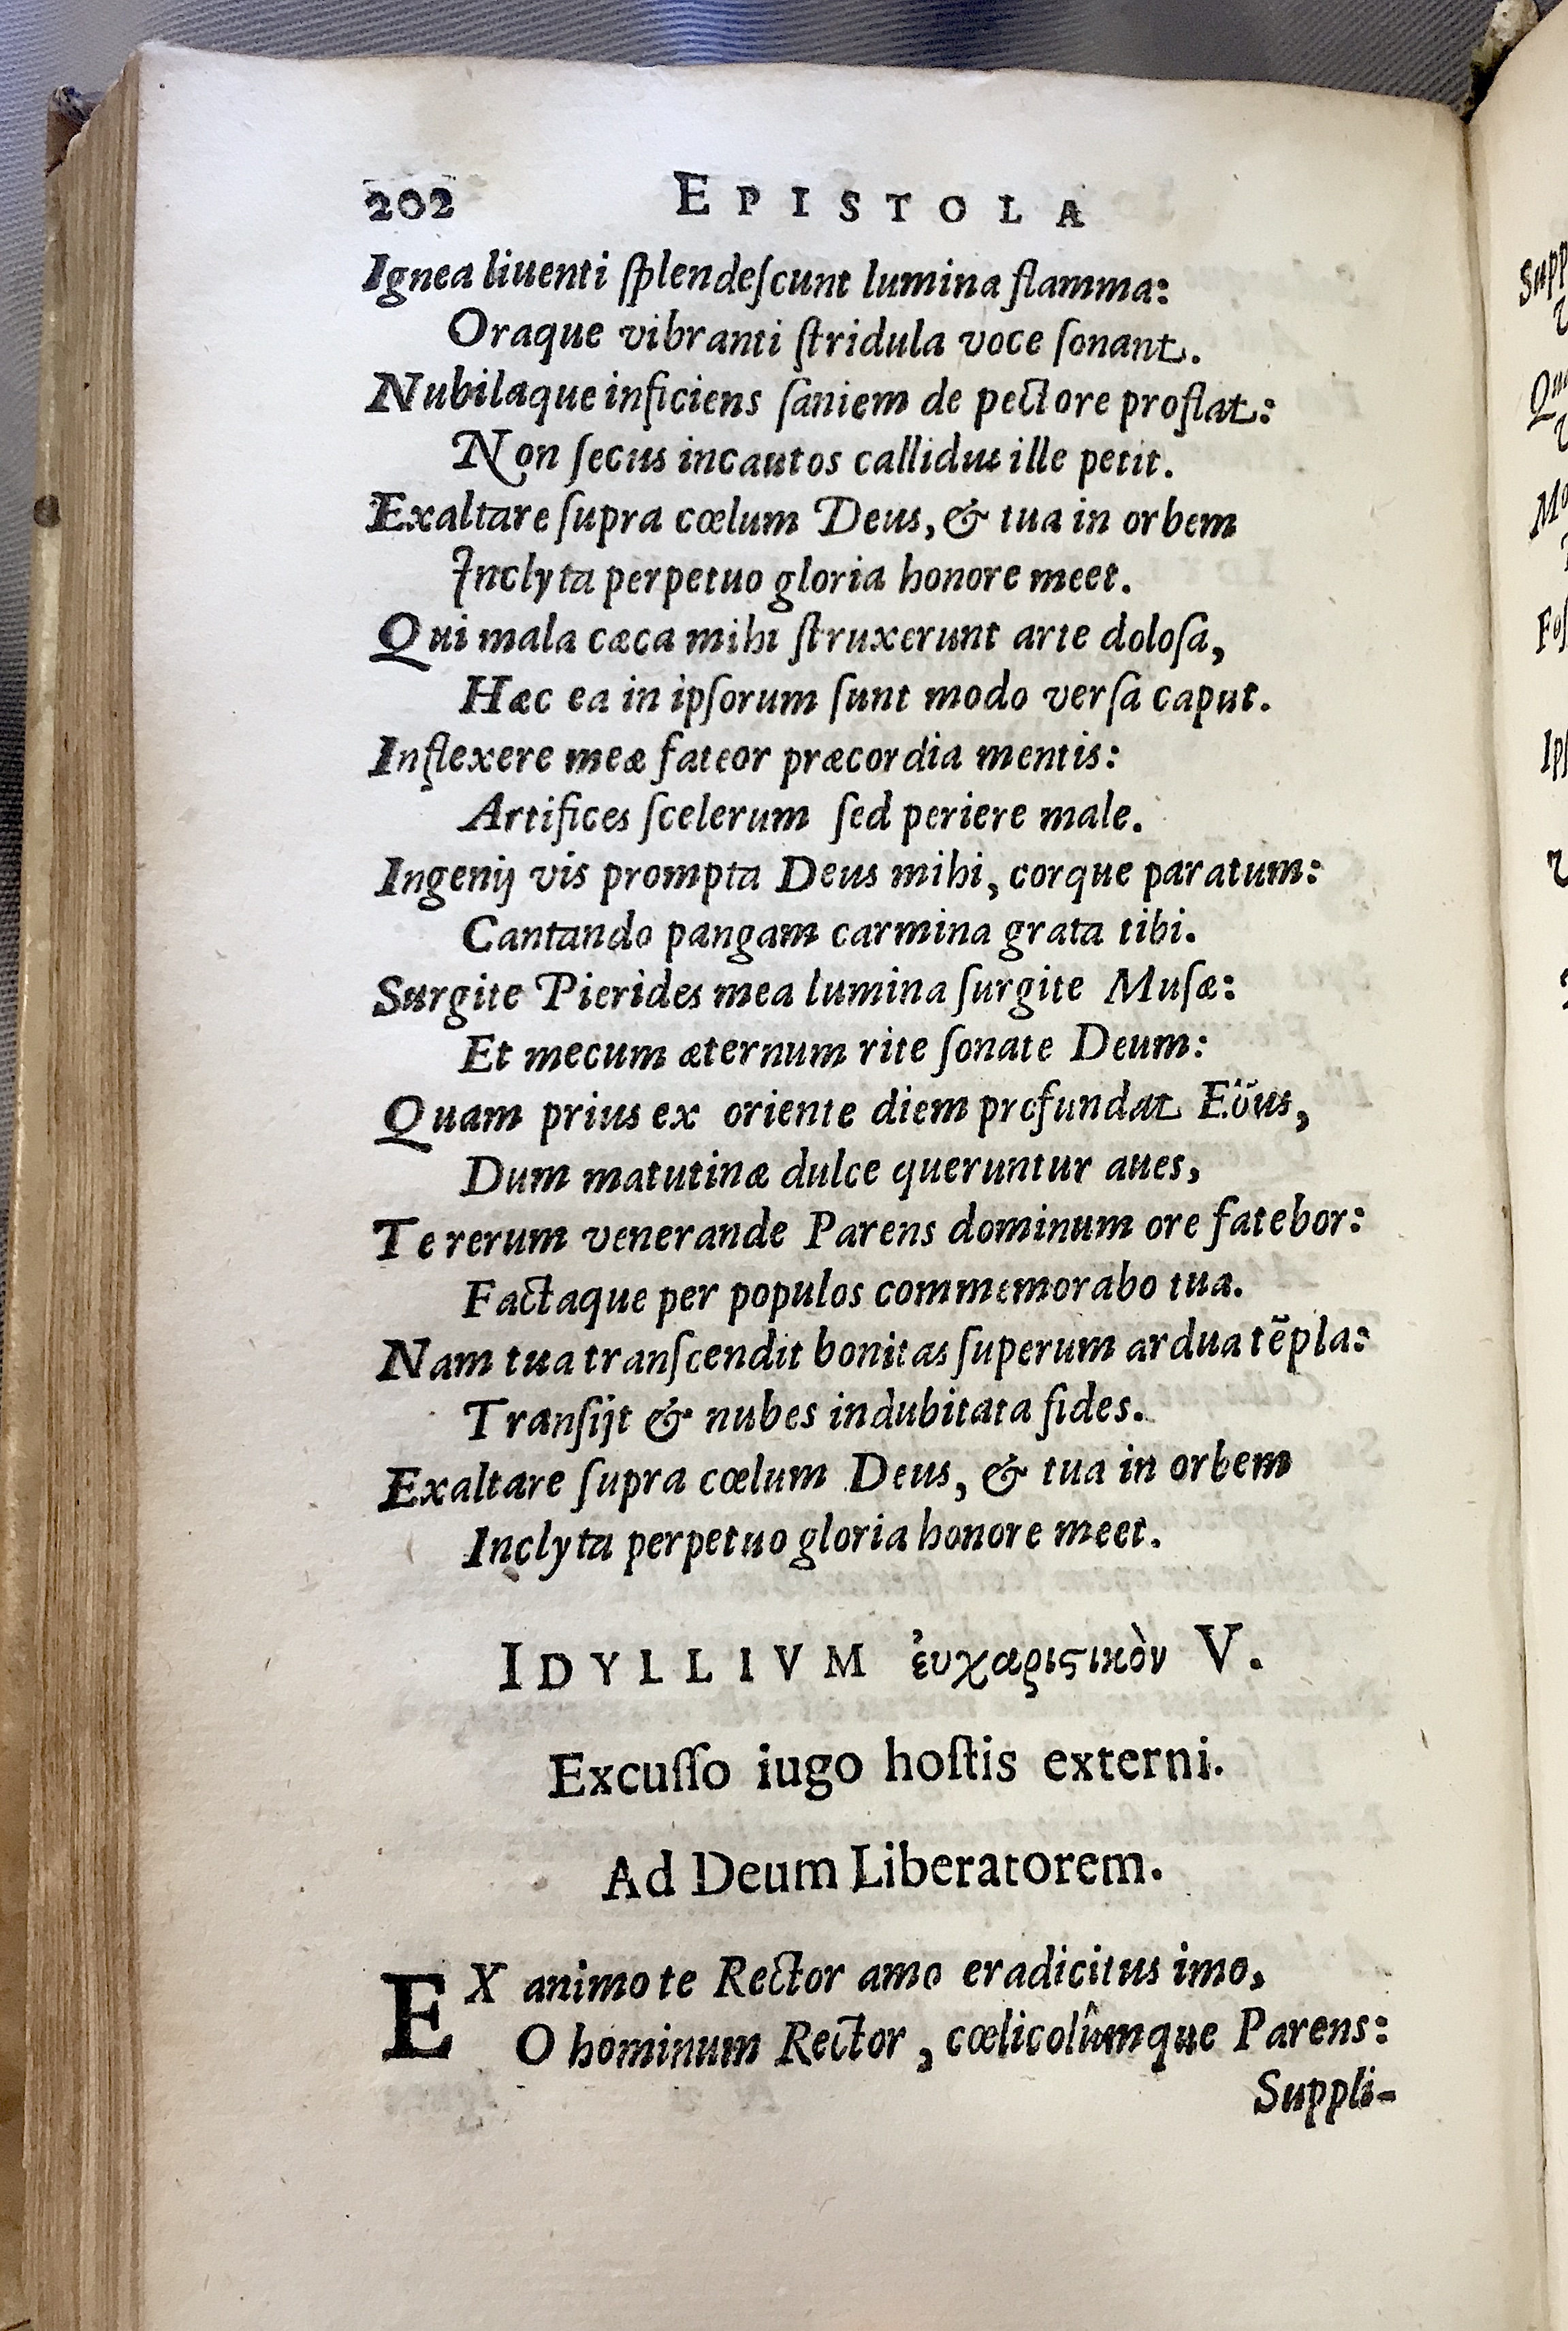 202 EPISTOLA
Ignea liuenti ſplendeſcunt lumina flamma:
Oraque vibranti ſtridula voce ſonant.
Nubilaque inficiens ſaniem de pectore proflat:
Non ſecus incautos callidus ille petit.
Exaltare ſupra cœlum Deus, & tua in orbem
Inclyta perpetuo gloria honore meet.
Qui mala cæca mihi ſtruxerunt arte doloſa,
Hæc ea in ipſorum ſunt modo verſa caput.
Inflexere meæ fateor præcordia mentis:
Artifices ſcelerum ſed periere male.
Ingenij vis prompta Deus mihi, corque paratum:
Cantando pangam carmina grata tibi.
Surgite Pierides mea lumina ſurgite Muſæ:
Et mecum æternum rite ſonate Deum:
Quam prius ex oriente diem profundat Eöus,
Dum matutinæ dulce queruntur aues,
Te rerum venerande Parens dominum ore fatebor:
Factaque per populos commemorabo tua.
Nam tua tranſcendit bonitas ſuperum ardua tēpla:
Tranſijt & nubes indubitata fides.
Exaltare ſupra cœlum Deus, & tua in orbem
Inclyta perpetuo gloria honore meet.
IDYLLIVM ἐυχαριϛικὸν V.
Excuſſo iugo hoſtis externi.
Ad Deum Liberatorem.
EX animo te Rector amo eradicitus imo,
O hominum Rector, cœlicolûmque Parens:
Suppli-